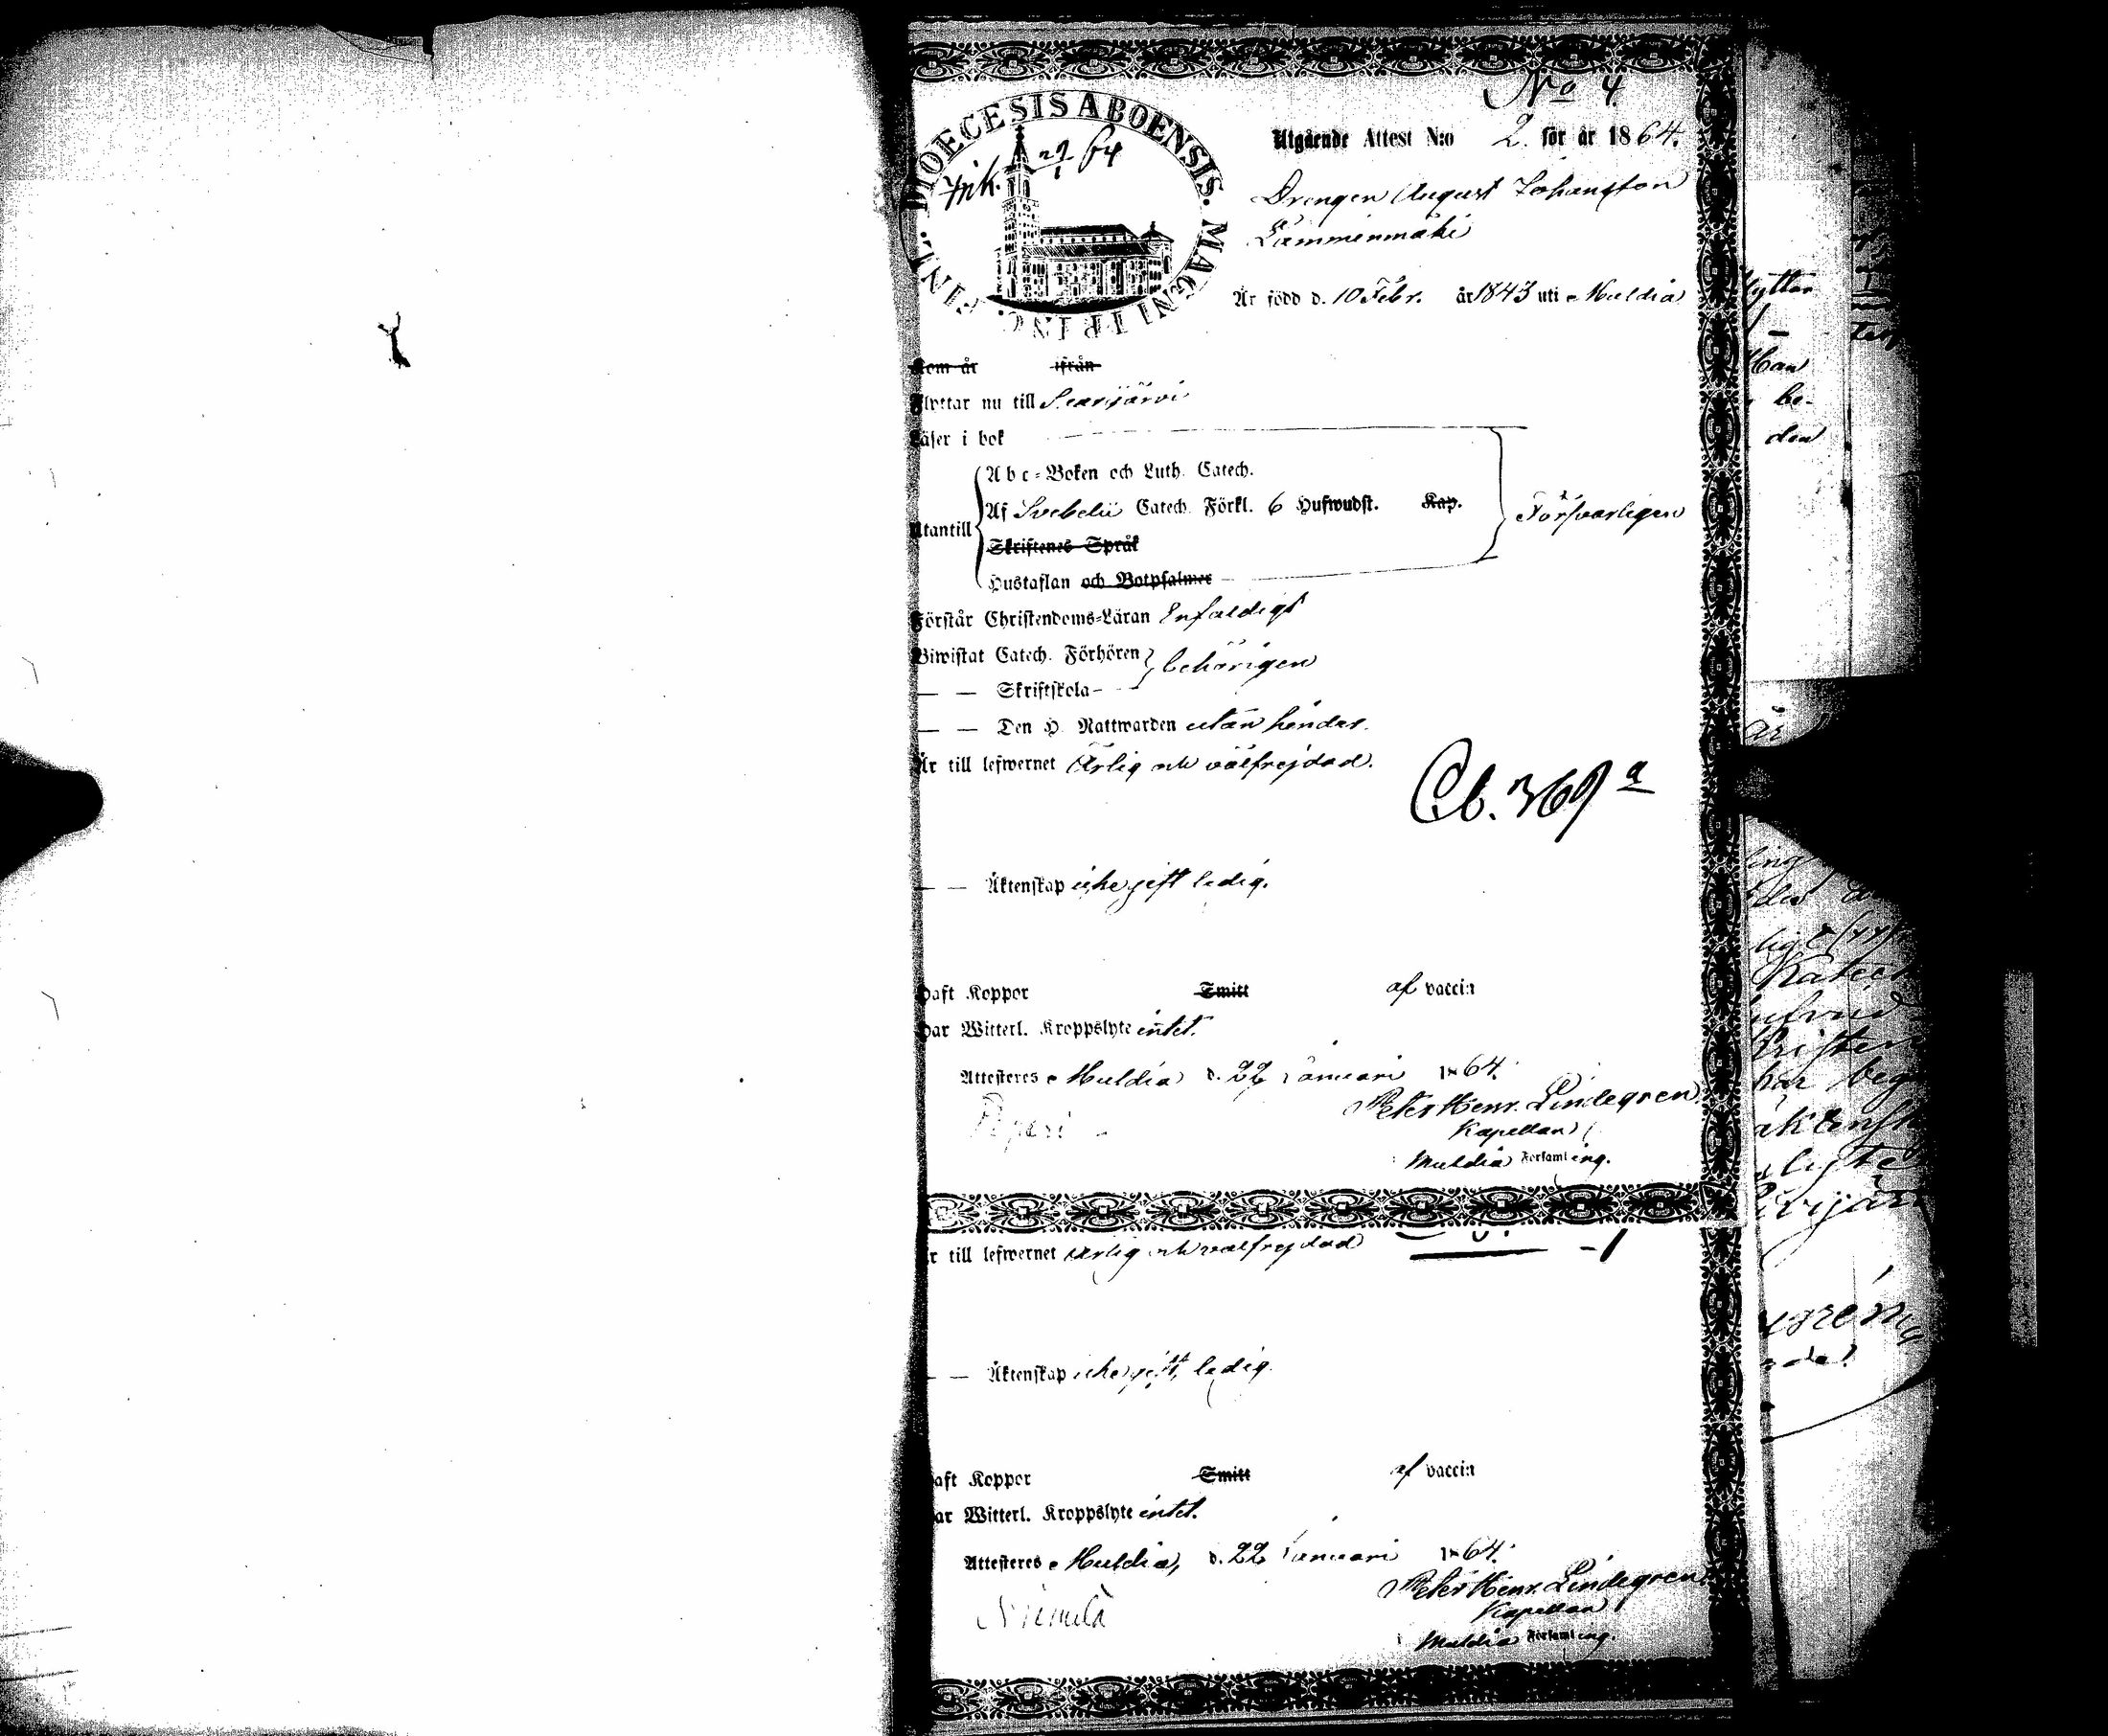 No 4.
DIOECESIS ABOENSIS. MAGNI PRINC. FINL.
Ink. 29/1 64
Utgående Attest N:o 2. för år 1864.
Drengen August Johansson
Lamminmäki
Är född d. 10 Febr. år 1843 uti Muldia
Kom år ifrån
Flyttar nu till Saarijärvi
Läser i bok
Abc-Boken och Luth. Catech.
Af Svebelii Catech. Förkl. 6 Hufwudst. Kap.
Utantill
Försvarligen
Skriftenes Språk
Hustaflan och Botpsalmer
Förstår Christendoms-Läran Enfaldigt
Biwistat Catech. Förhören behörigen
— — Skriftskola
— — Den H. Nattwarden utan hinder.
Är till lefwernet Ärlig och välfrejdad.
Cb. 369 a
— — Äktenskap icke gift ledig.
Haft Koppor Smitt af vaccin
Har Witterl. Kroppslyte intet.
Attesteres Muldia d. 22 Januari 1864.
Peter Henr. Lindegren.
Kapellan
i Muldia Församling.
Är till lefwernet Ärlig och välfrejdad
— — Äktenskap icke gift, ledig.
Haft Koppor Smitt af vaccin
Har Witterl. Kroppslyte intet.
Attesteres Muldia, d. 22 Januari 1864.
Peter Henr. Lindegren
Niemelä
Kapellan
i Muldia Församling.